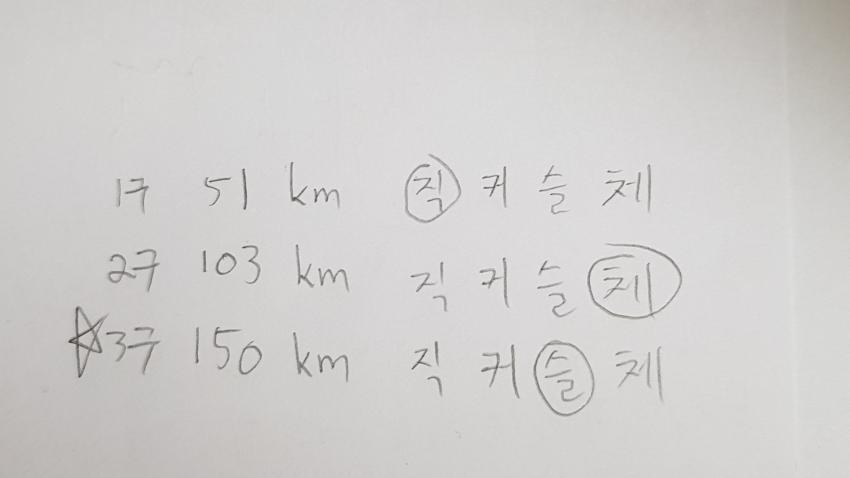 1구 51 km 직 커 슬 체
2구 103 km 직 커 슬 체
☆3구 150 km 직 커 슬 체